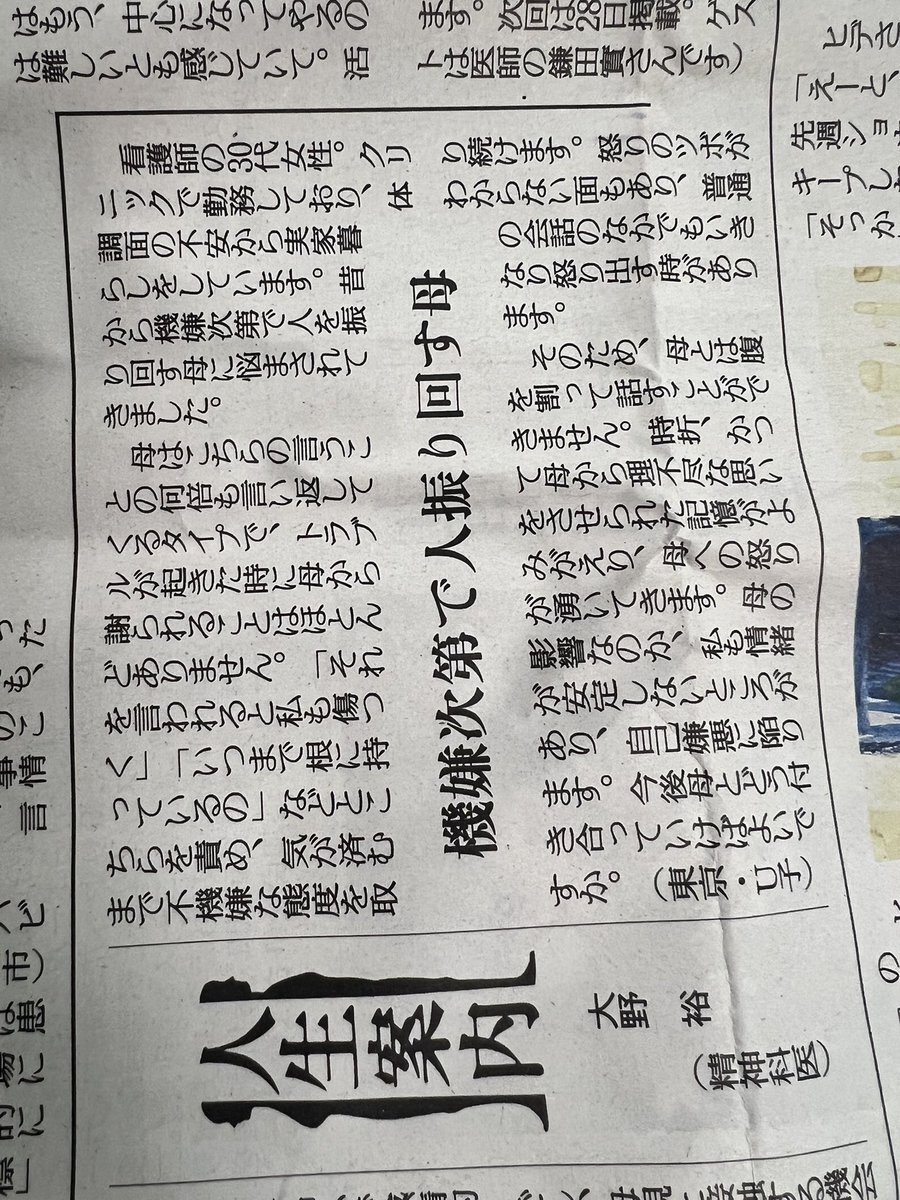 はもう、中心になってやるの
は難しいとも感じていて。活
ます。次回は28日掲載。ゲス
トは医師の鎌田實さんです）
人生案内
大野 裕
（精神科医）
機嫌次第で人振り回す母
看護師の30代女性。クリ
ニックで勤務しており、体
調面の不安から実家暮
らしをしています。昔
から機嫌次第で人を振
り回す母に悩まされて
きました。
母はこちらの言うこ
との何倍も言い返して
くるタイプで、トラブ
ルが起きた時に母から
謝られることはほとん
どありません。「それ
を言われると私も傷つ
く」「いつまで根に持
っているの」などとこ
ちらを責め、気が済む
まで不機嫌な態度を取
り続けます。怒りのツボが
わからない面もあり、普通
の会話のなかでもいき
なり怒り出す時があり
ます。
そのため、母とは腹
を割って話すことがで
きません。時折、かつ
て母から理不尽な思い
をさせられた記憶がよ
みがえり、母への怒り
が湧いてきます。母の
影響なのか、私も情緒
が安定しないところが
あり、自己嫌悪に陥り
ます。今後母とどう付
き合っていけばよいで
すか。
（東京・U子）
ヒデさ
「えーと、
先週ショ
キープした
「そっか